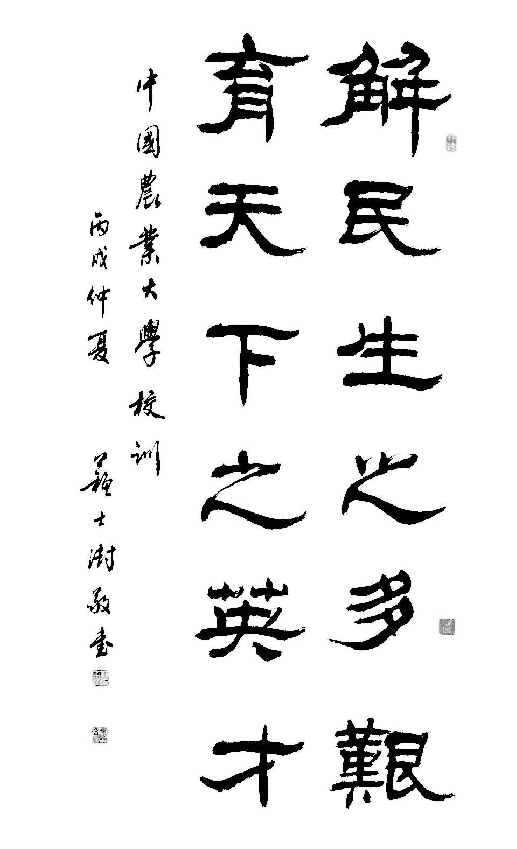 解民生之多艱
育天下之英才
中國農業大學校訓
丙戌仲夏 蘇士澍敬書